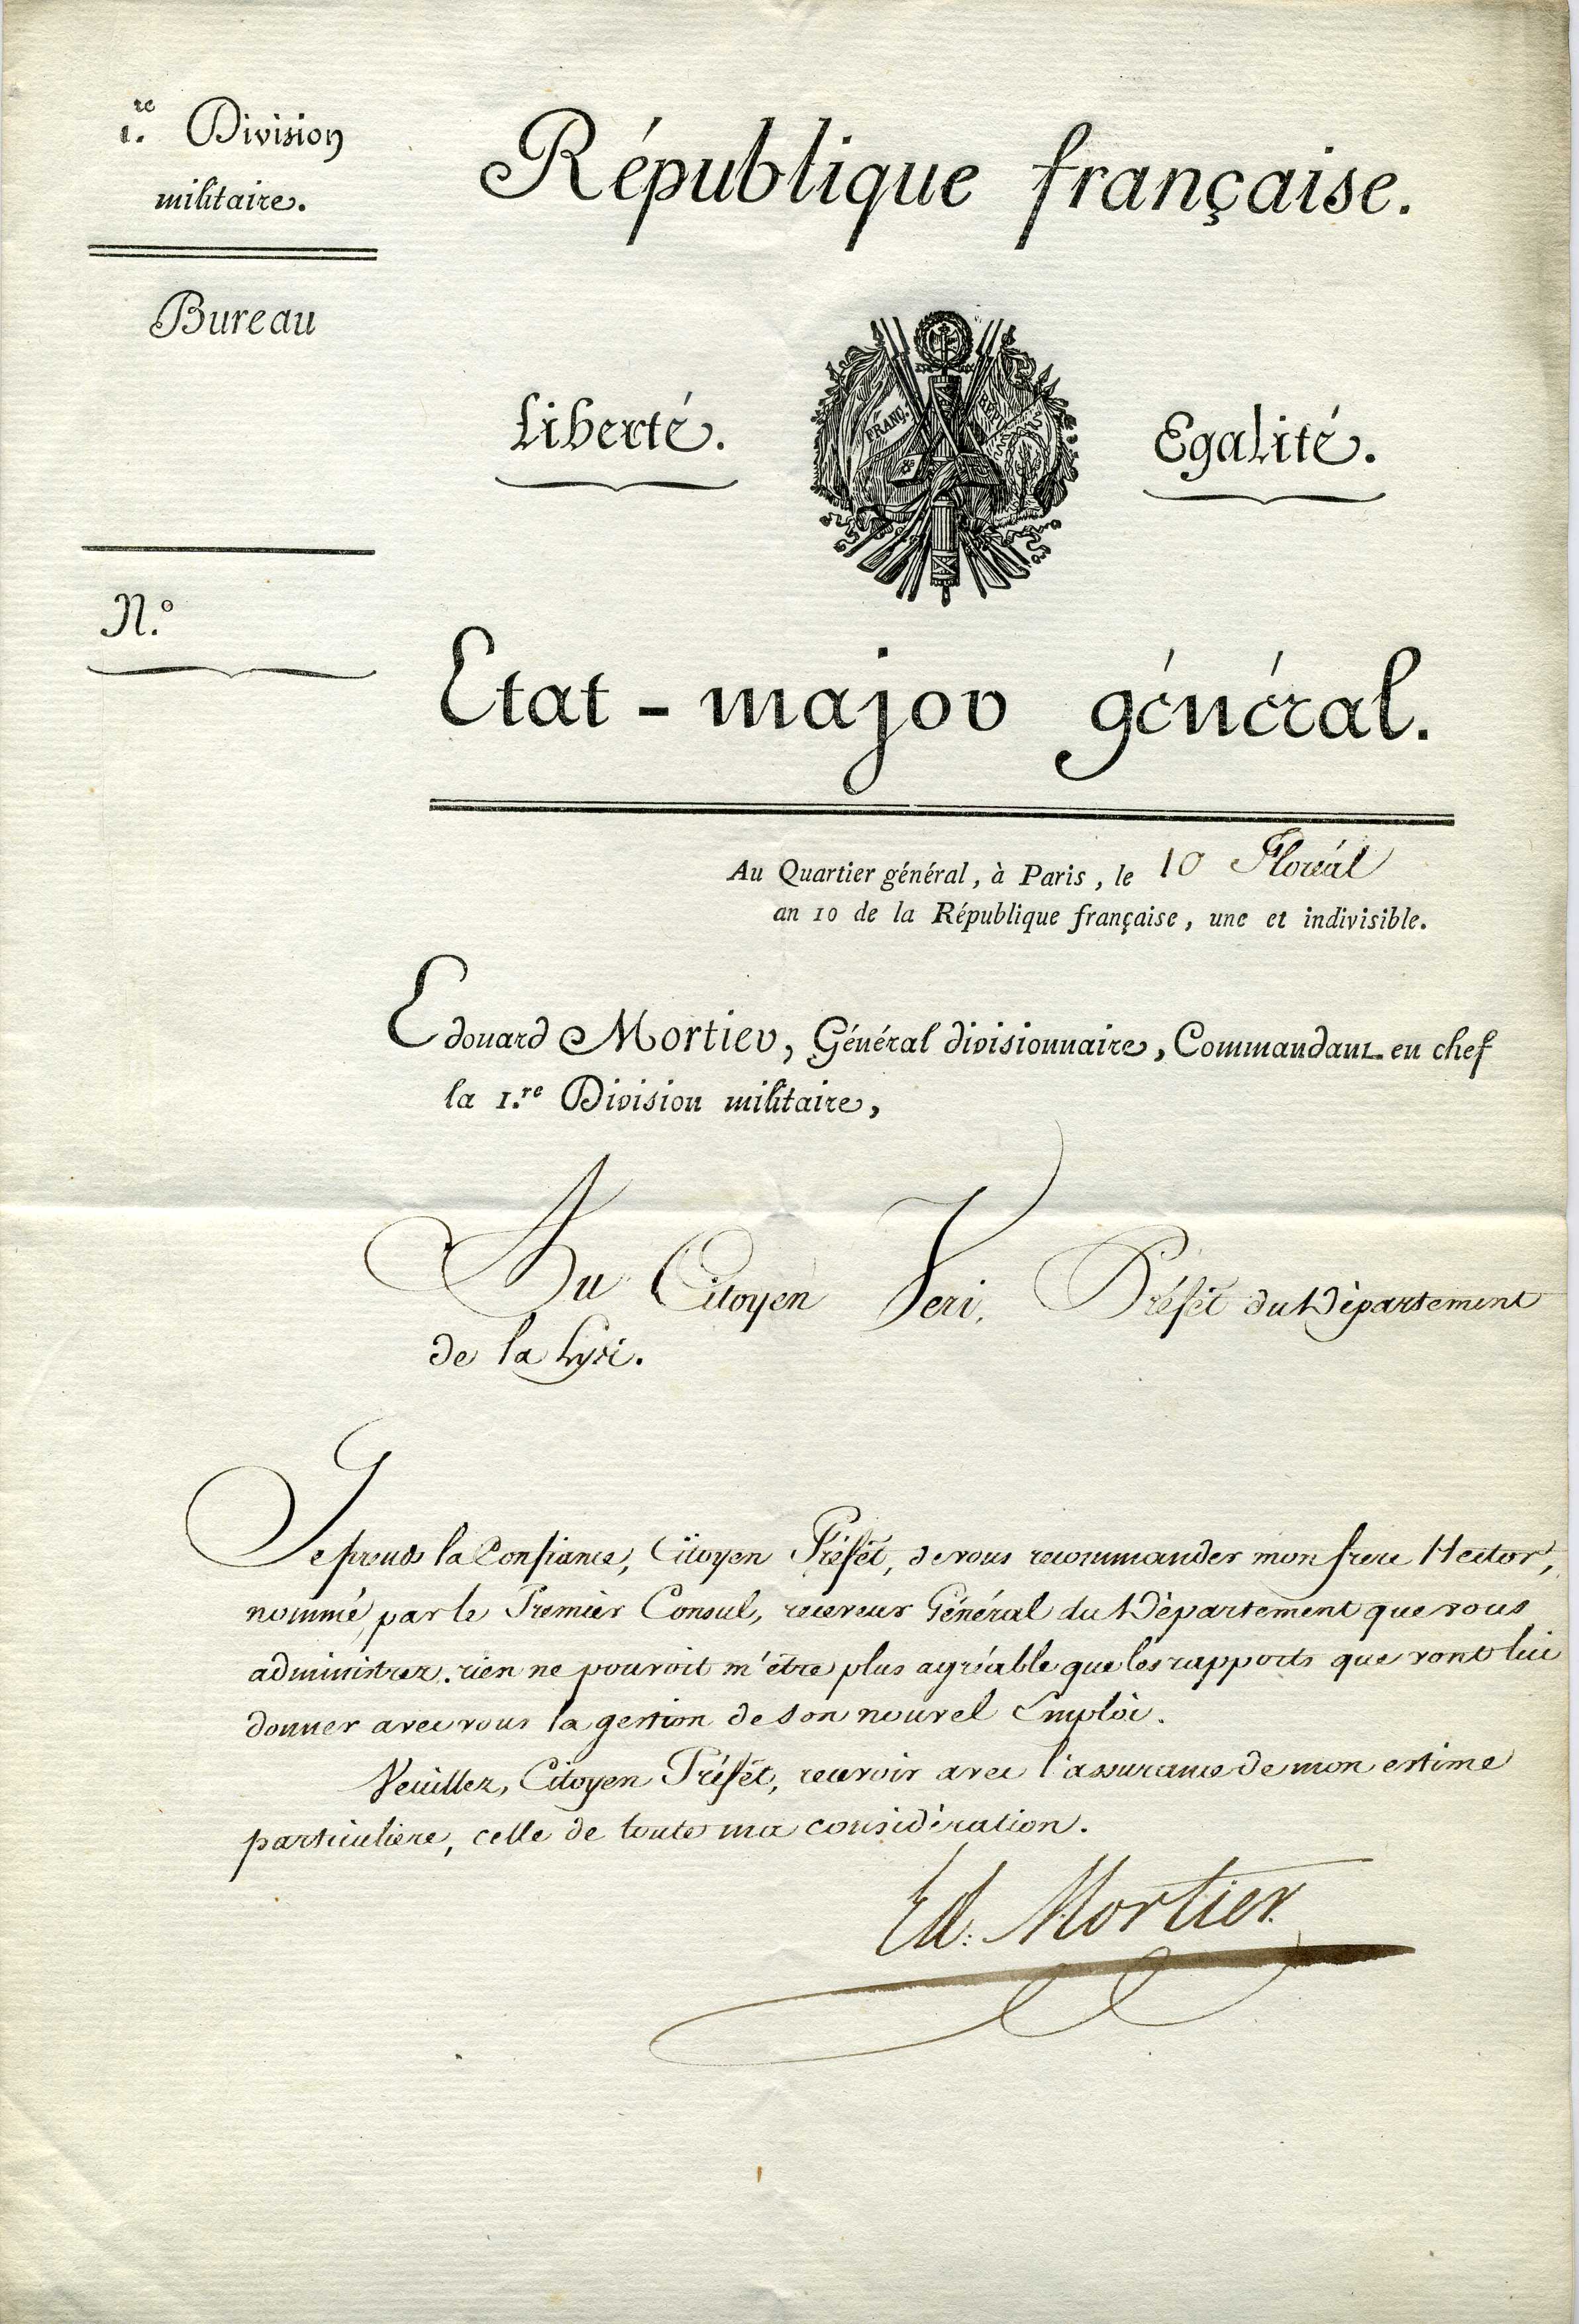 1.re Division
militaire.
Bureau
N.º
République française.
Liberté.
FRANÇ.
RÉP
Egalité.
Etat-major général.
Au Quartier général, à Paris, le 10 Floréal
an 10 de la République française, une et indivisible.
Edouard Mortier, Général divisionnaire, Commandant en chef
la 1.re Division militaire,
Au Citoyen Veri, Préfèt du Département
de la Lysi.
Je prends la Confiance, Citoyen Préfèt, de vous recommander mon frere Hector,
nommé, par le Premier Consul, receveur Général du Département que vous
administrez. rien ne pouvoit m'être plus agréable que les rapports que vont lui
donner avec vous la gestion de son nouvel Emploi.
Veuillez, Citoyen Préfèt, recevoir avec l'assurance de mon estime
particuliere, celle de toute ma considération.
Ed: Mortier